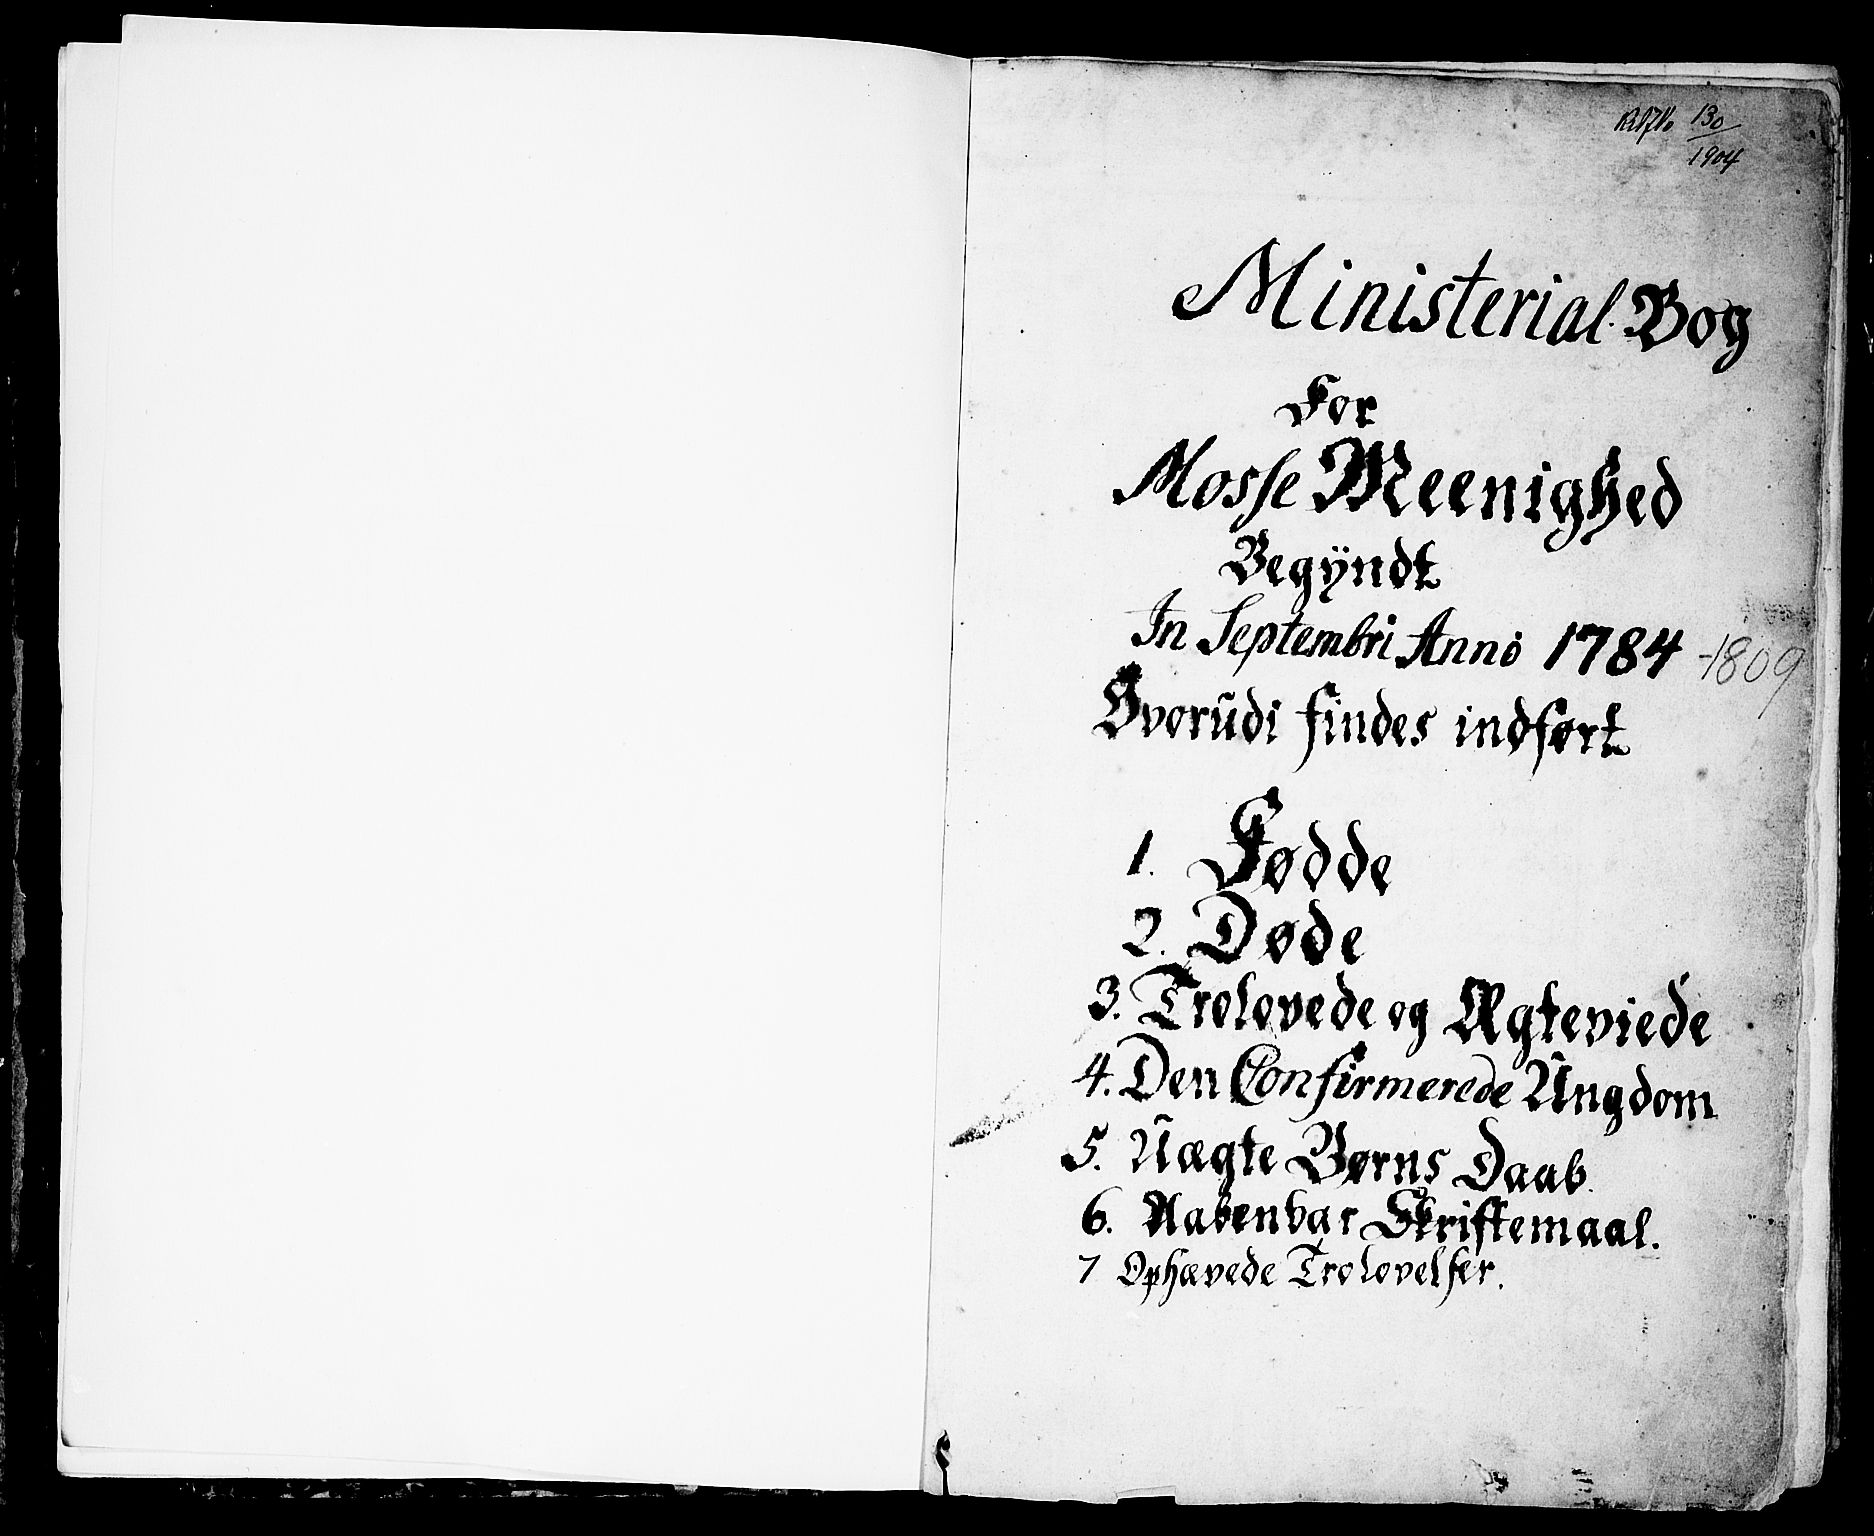 130
1904
Ministerial Bog
For
Mosse Meenighed
Begÿndt
In Septembri Anno 1784 -1809
Hvorudi findes indført
1. Fødde
2. Døde
3. Trolovede og Ægteviede
4. Den Confirmerede Ungdom
5. Uægte Børns Daab.
6. Aabenbar Skriftemaal.
7 Ophævede Trolovelser.